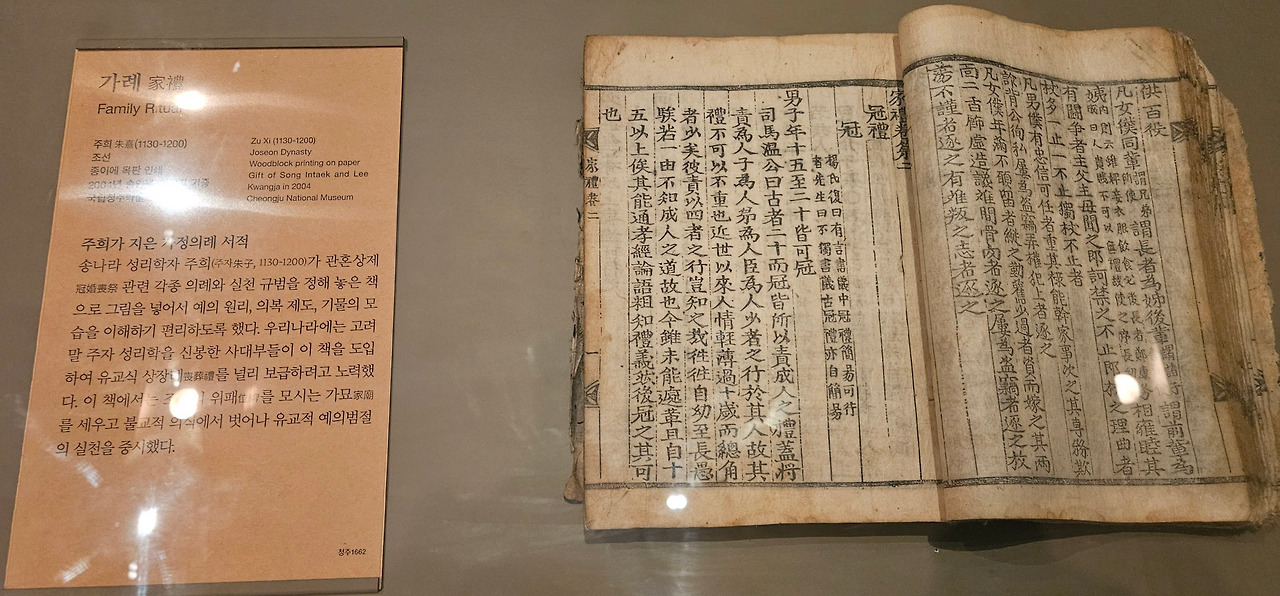 가례 家禮
Family Ritual
주희 朱熹(1130-1200)
조선
종이에 목판 인쇄
2004년
국립청주박물관
Zu Xi (1130-1200)
Joseon Dynasty
Woodblock printing on paper
Gift of Song Intaek and Lee
Kwangja in 2004
Cheongju National Museum
주희가 지은 가정의례 서적
송나라 성리학자 주희(주자朱子, 1130-1200)가 관혼상제
冠婚喪祭 관련 각종 의례와 실천 규범을 정해 놓은 책
으로 그림을 넣어서 예의 원리, 의복 제도, 기물의 모
습을 이해하기 편리하도록 했다. 우리나라에는 고려
말 주자 성리학을 신봉한 사대부들이 이 책을 도입
하여 유교식 상장례喪葬禮를 널리 보급하려고 노력했
다. 이 책에서는 위패를 모시는 가묘家廟
를 세우고 불교적 의식에서 벗어나 유교적 예의범절
의 실천을 중시했다.
청주1662
供百役
凡女僕同輩謂兄弟所使謂長者為姊後輩謂前輩為
姨內則云雖婢妾衣服飲食必後長者鄭康成曰人貴賤不可以無禮故使之序長幼務相雍睦其
有鬪争者主父主母聞之即訶禁之不止即杖之理曲者
杖多一止一不止獨杖不止者
凡男僕有忠信可任者重其祿能幹家事次之其專務欺
詐背公徇私屢為盗竊弄權犯上者逐之
凡女僕年滿不願留者縱之勤舊少過者資而嫁之其兩
面二舌飾虚造讒離間骨肉者逐之屢為盗竊者逐之放
蕩不謹者逐之有離叛之志者逐之
家禮卷第二
冠禮
冠
楊氏復曰有言書儀中冠禮簡易可行
者先生曰不獨書儀古冠禮亦自簡易
男子年十五至二十皆可冠
司馬温公曰古者二十而冠皆所以責成人之禮蓋將
責為人子為人弟為人臣為人少者之行於其人故其
禮不可以不重也近世以來人情輕薄過十歲而總角
者少矣彼責以四者之行豈知之哉徃徃自幼至長愚
騃若一由不知成人之道故也今雖未能遽革且自十
五以上俟其能通孝經論語粗知禮義然後冠之其可
也
家禮卷二